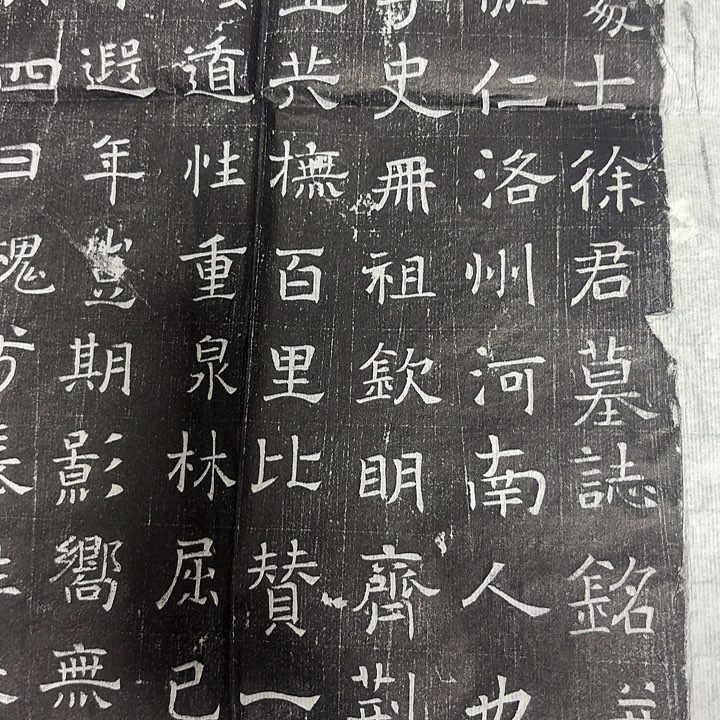 士徐君墓誌銘
仁洛州河南人也
史冊祖欽眀齊荊
共撫百里比賛一
道性重泉林屈己
遐年豈期影嚮無
四日槐方